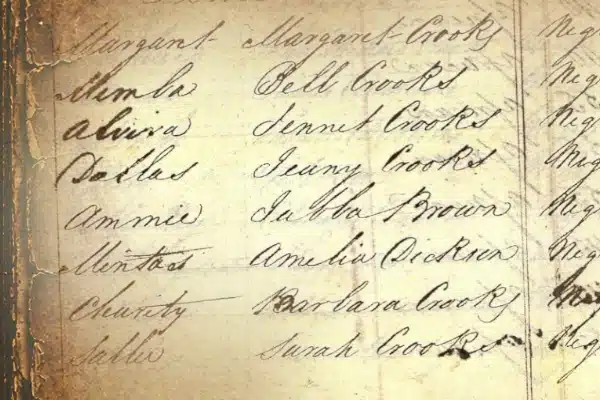 Margaret Margaret Crooks Neg
Mimba Bell Crooks Neg
Alvira Jennet Crooks Neg
Dallas Jeany Crooks Neg
Ammie Jabba Brown Neg
Mintas Amelia Dickson Neg
Charity Barbara Crooks Neg
Sallie Sarah Crooks Neg